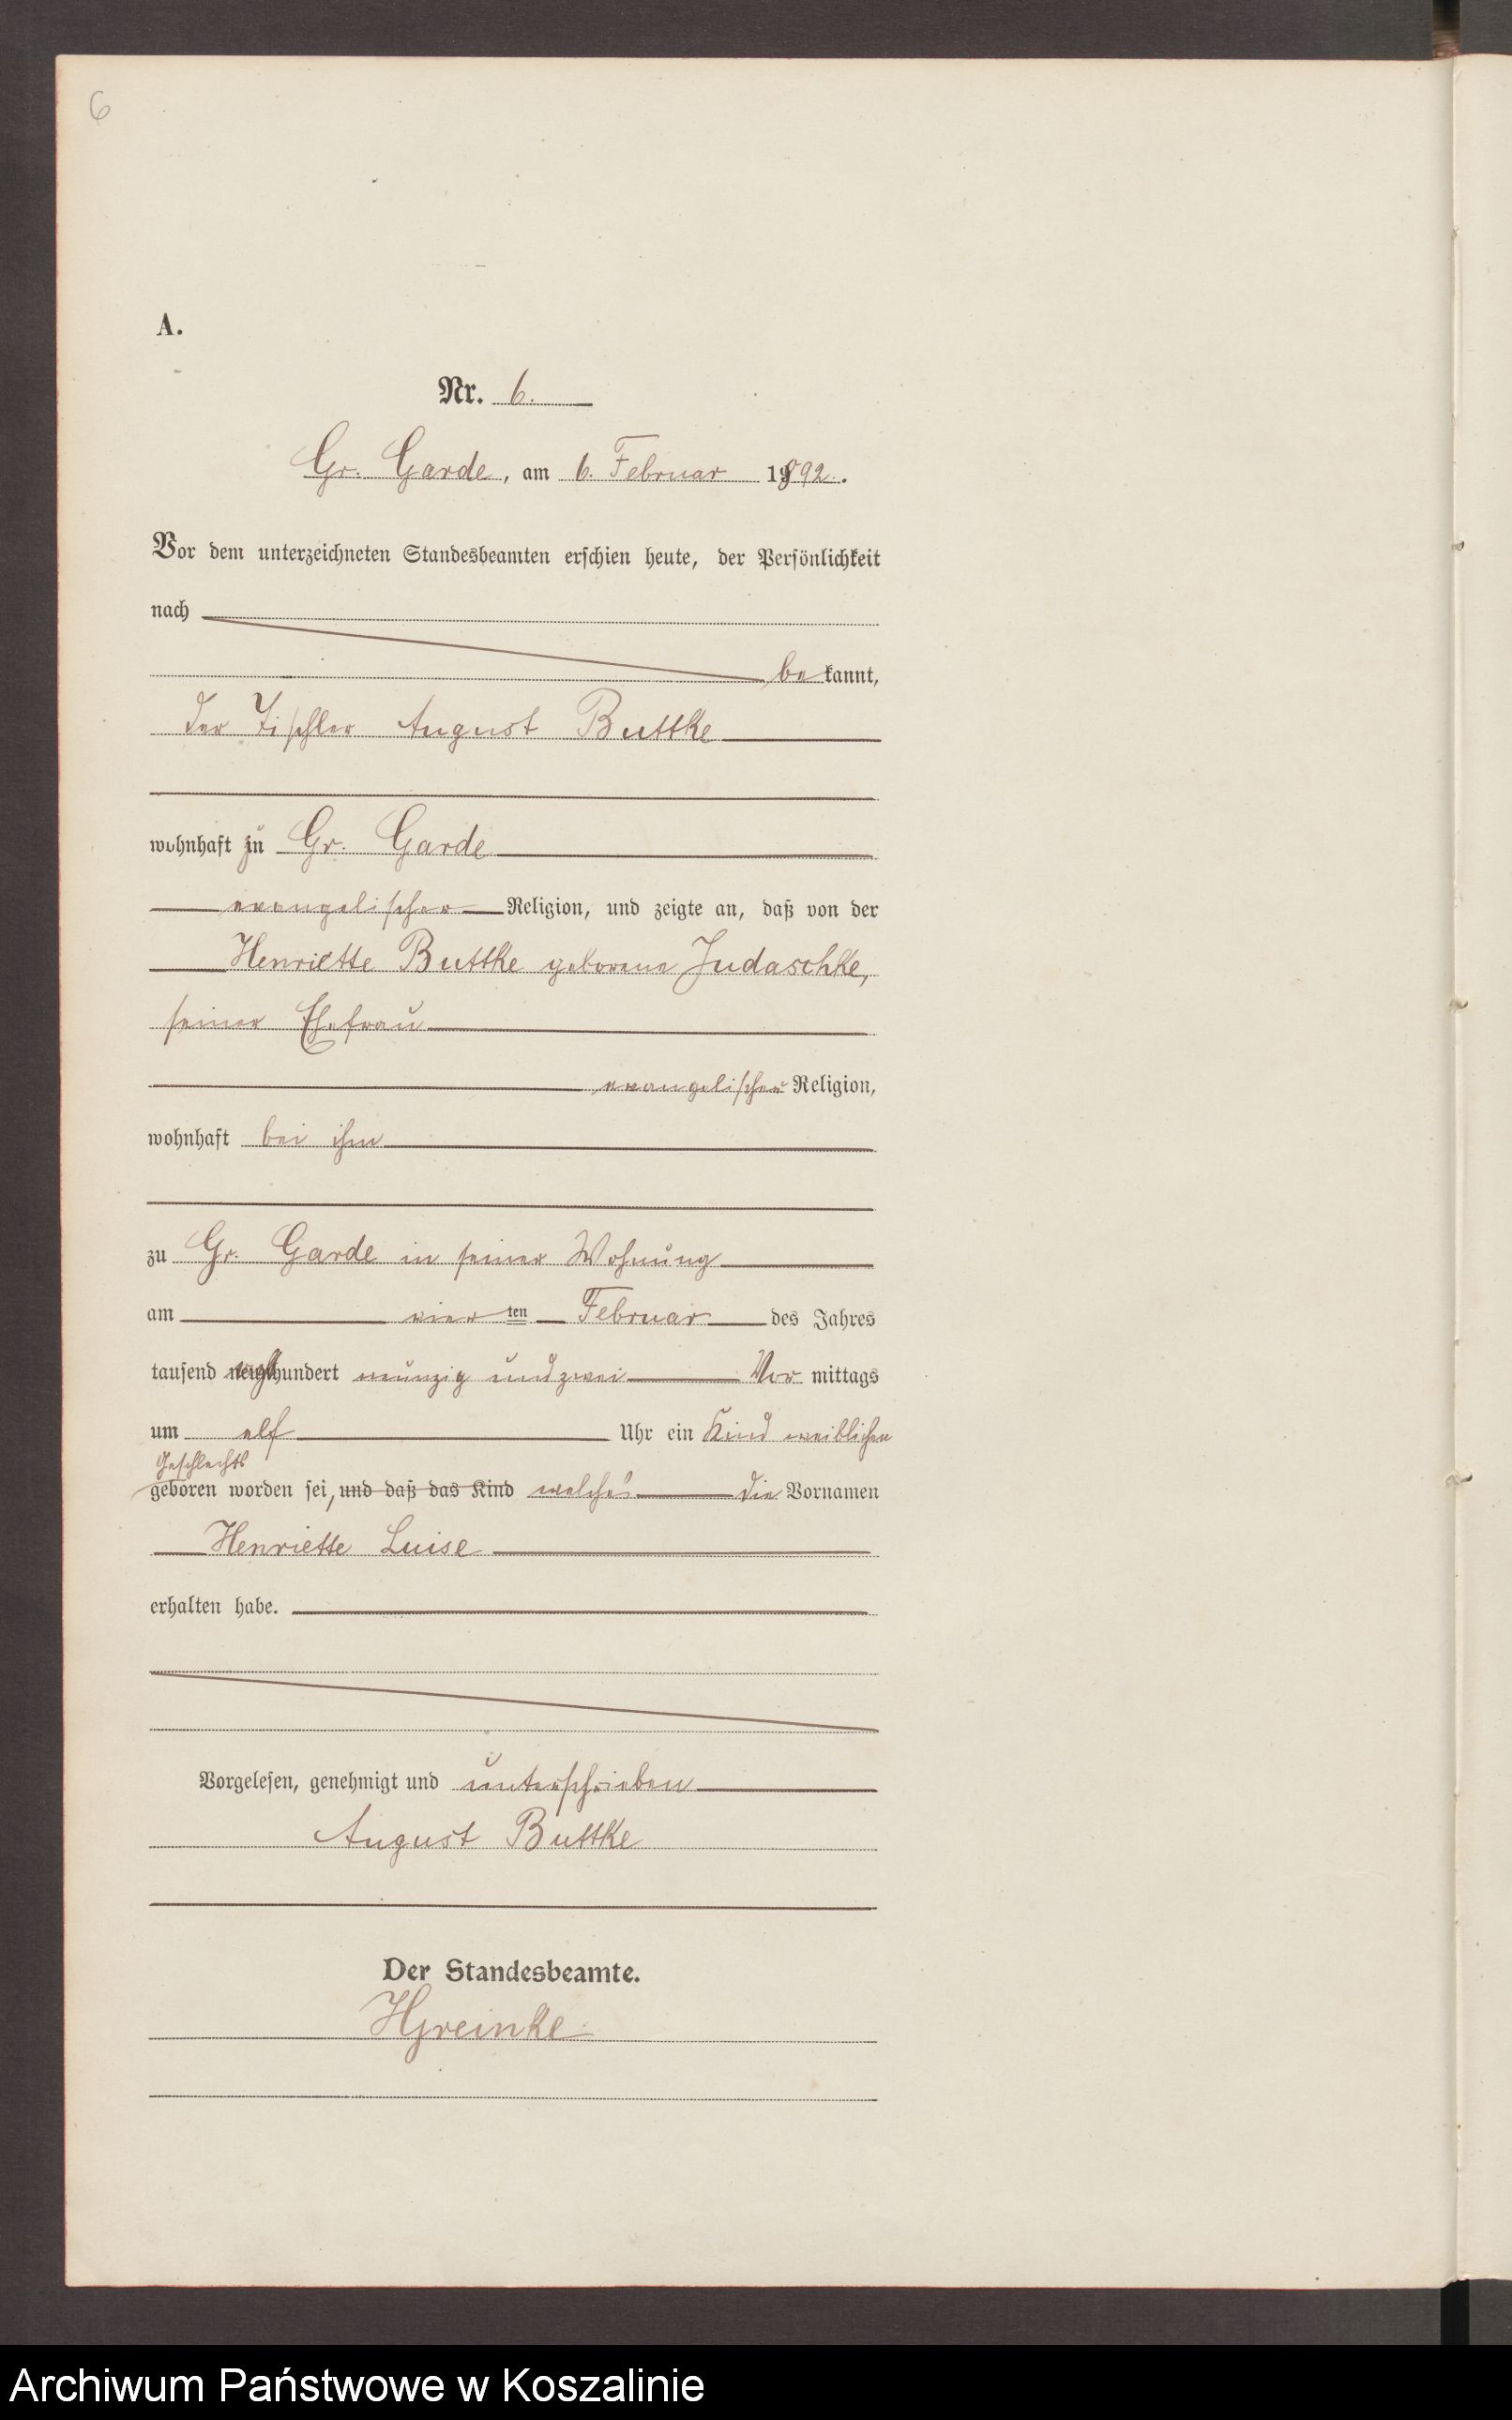 6
A.
Nr. 6.
Gr. Garde, am 6. Februar 1892.
Vor dem unterzeichneten Standesbeamten erschien heute, der Persönlichkeit
nach
bekannt,
der Tischler August Buttke
wohnhaft in Gr. Garde
evangelischer Religion, und zeigte an, daß von der
Henriette Buttke geborene Judaschke,
seiner Ehefrau
evangelischer Religion,
wohnhaft bei ihm
zu Gr. Garde in seiner Wohnung
am vierten Februar des Jahres
tausend hundert neunzig und zwei Vormittags
um elf Uhr ein Kind weiblichen
Geschlechts
geboren worden sei, und daß das Kind welches die Vornamen
Henriette Luise
erhalten habe.
Vorgelesen, genehmigt und unterschrieben
August Buttke
Der Standesbeamte.
HGreinke
Archiwum Państwowe w Koszalinie